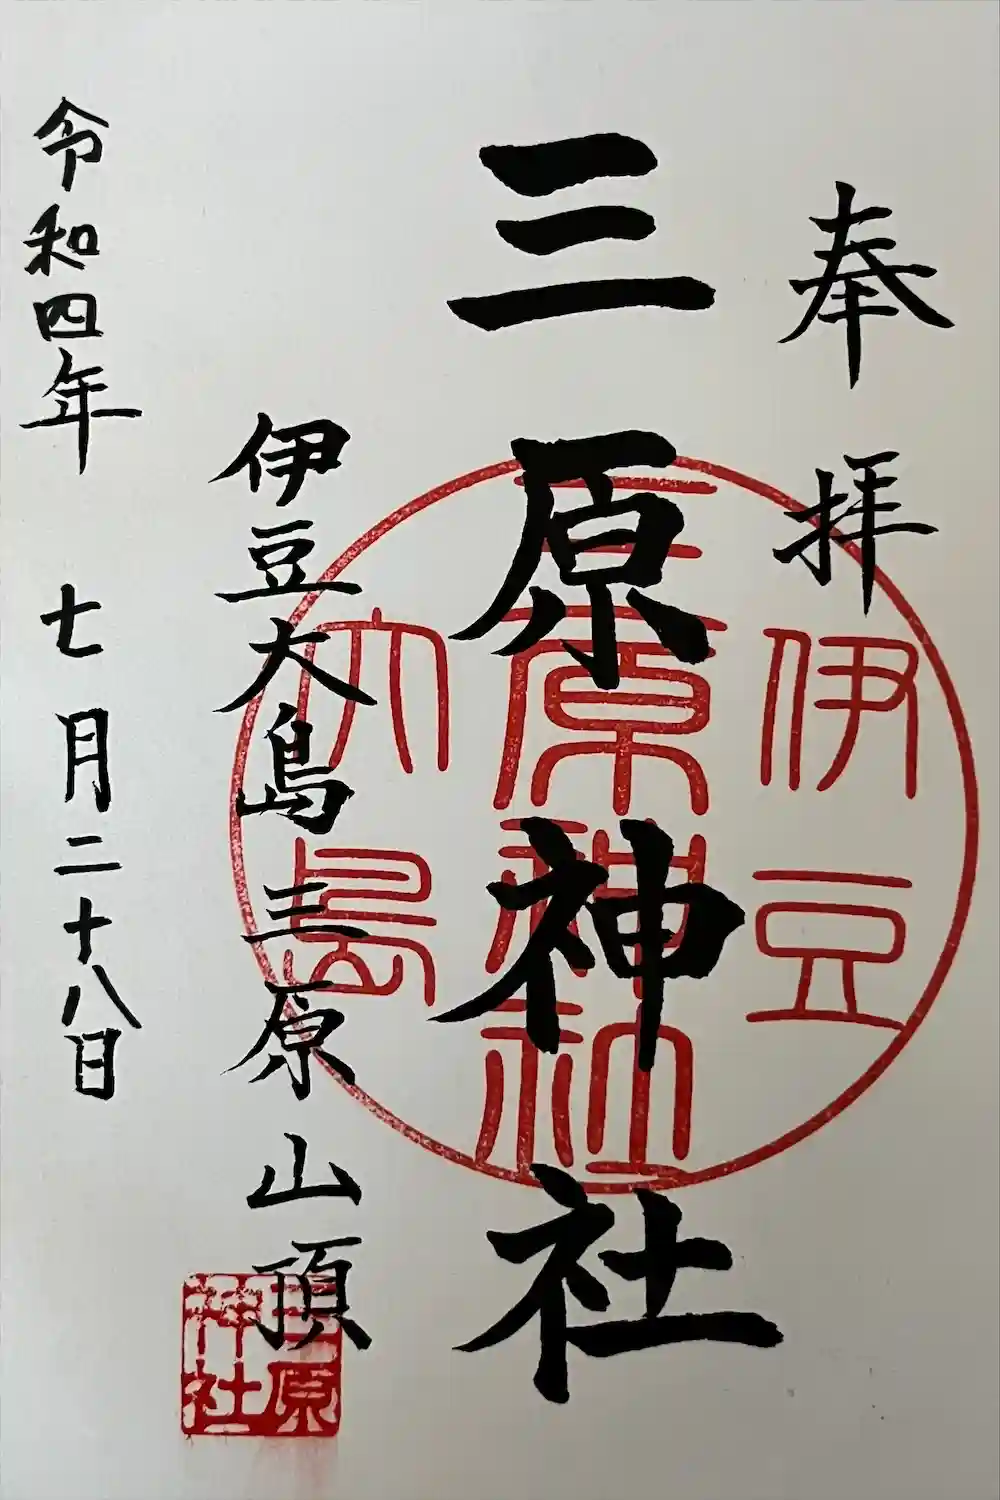 奉拝
三原神社
伊豆
三原神社
大島
伊豆大島三原山頂
三原
神社
令和四年七月二十八日